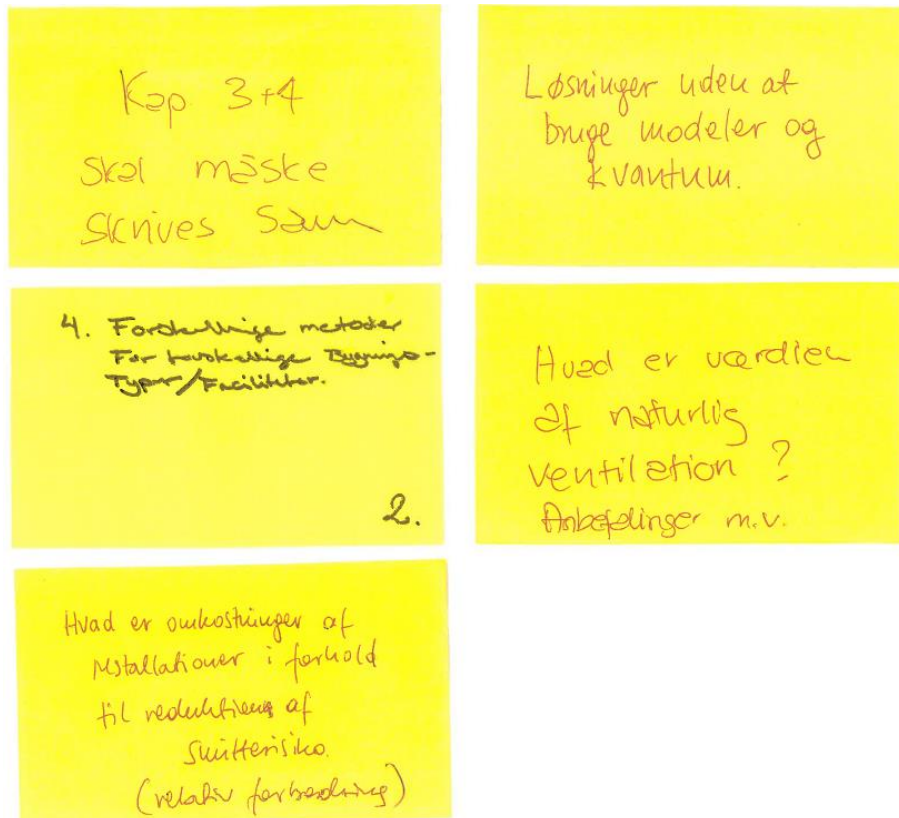 Kap 3+4
skal måske
skrives sam
Løsninger uden at
bruge modeler og
kvantum.
4. Forskellige metoder
For forskellige Bygnings-
Typer/Faciliteter.
2.
Hvad er værdien
af naturlig
ventilation ?
Anbefalinger m.v.
Hvad er omkostninger af
installationer i forhold
til reduktion af
smitterisiko.
(relativ forbedring)